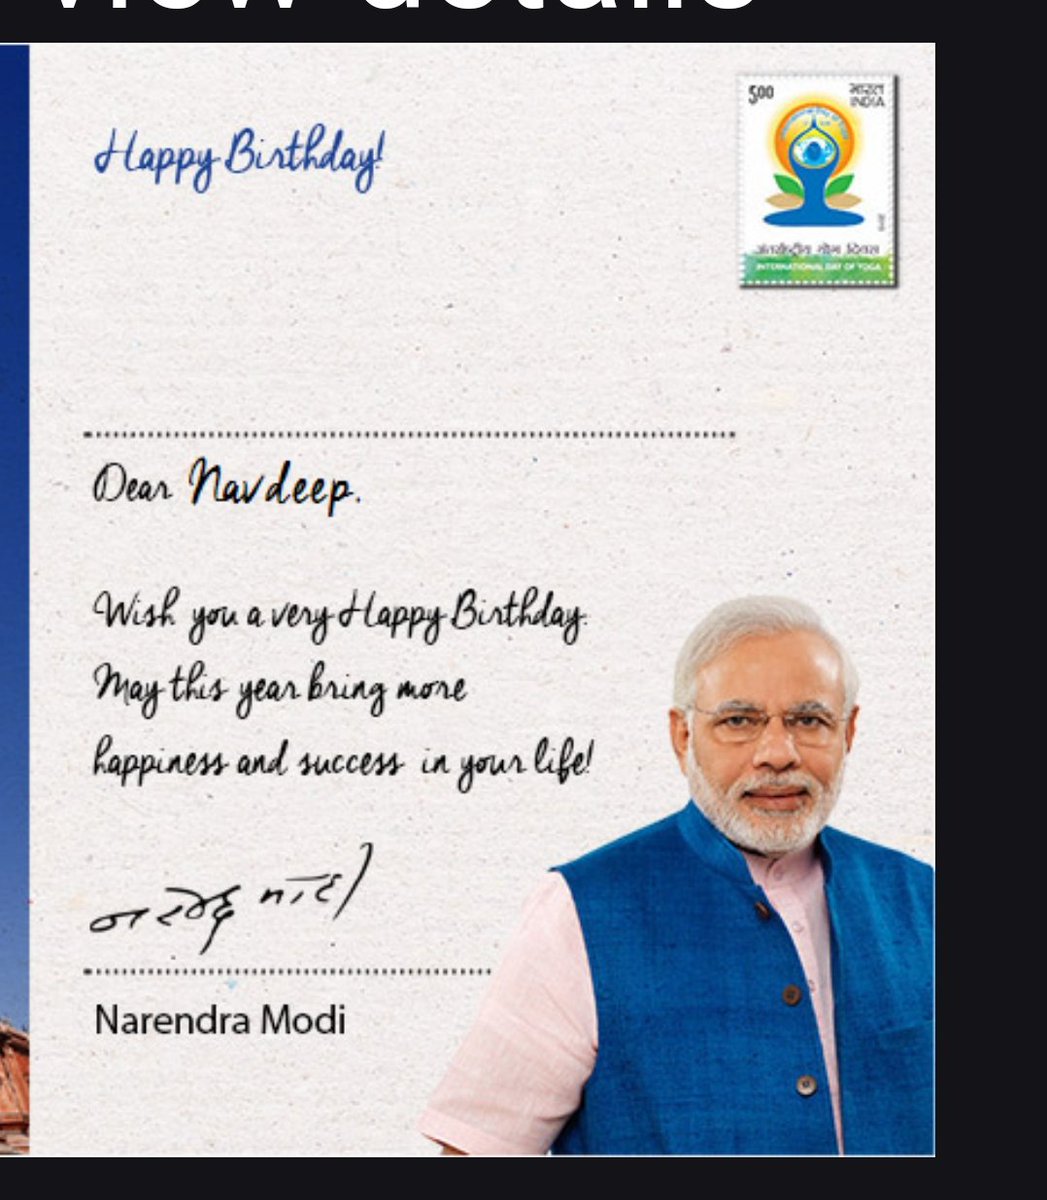 view details
Happy Birthday!
5.00
भारत
INDIA
अंतर्राष्ट्रीय योग दिवस
INTERNATIONAL DAY OF YOGA
Dear Navdeep.
Wish you a very Happy Birthday.
May this year bring more
happiness and success in your life!
नरेन्द्र मोदी
Narendra Modi